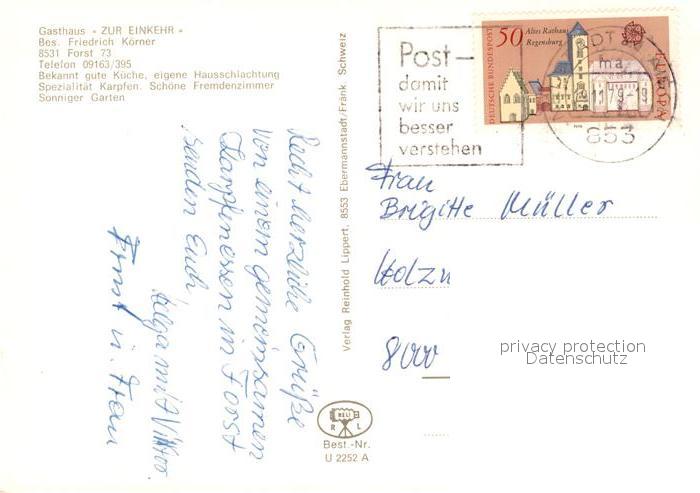 Gasthaus »ZUR EINKEHR«
Bes. Friedrich Körner
8531 Forst 73
Telefon 09163/395
Bekannt gute Küche, eigene Hausschlachtung
Spezialität Karpfen. Schöne Fremdenzimmer
Sonniger Garten
Recht herzliche Grüße
von einem gemeinsamen
Karpfenessen in Forst
senden Euch
Helga mit Viktor
Ernst u. Frau
Verlag Reinhold Lippert, 8553 Ebermannstadt/Fränk Schweiz
HELI
R L
Best.-Nr.
U 2252 A
Post-
damit
wir uns
besser
verstehen
DEUTSCHE BUNDESPOST
50
Altes Rathaus
Regensburg
EUROPA
ma
11.79-19
853
Frau
Brigitte Müller
8000
privacy protection
Datenschutz